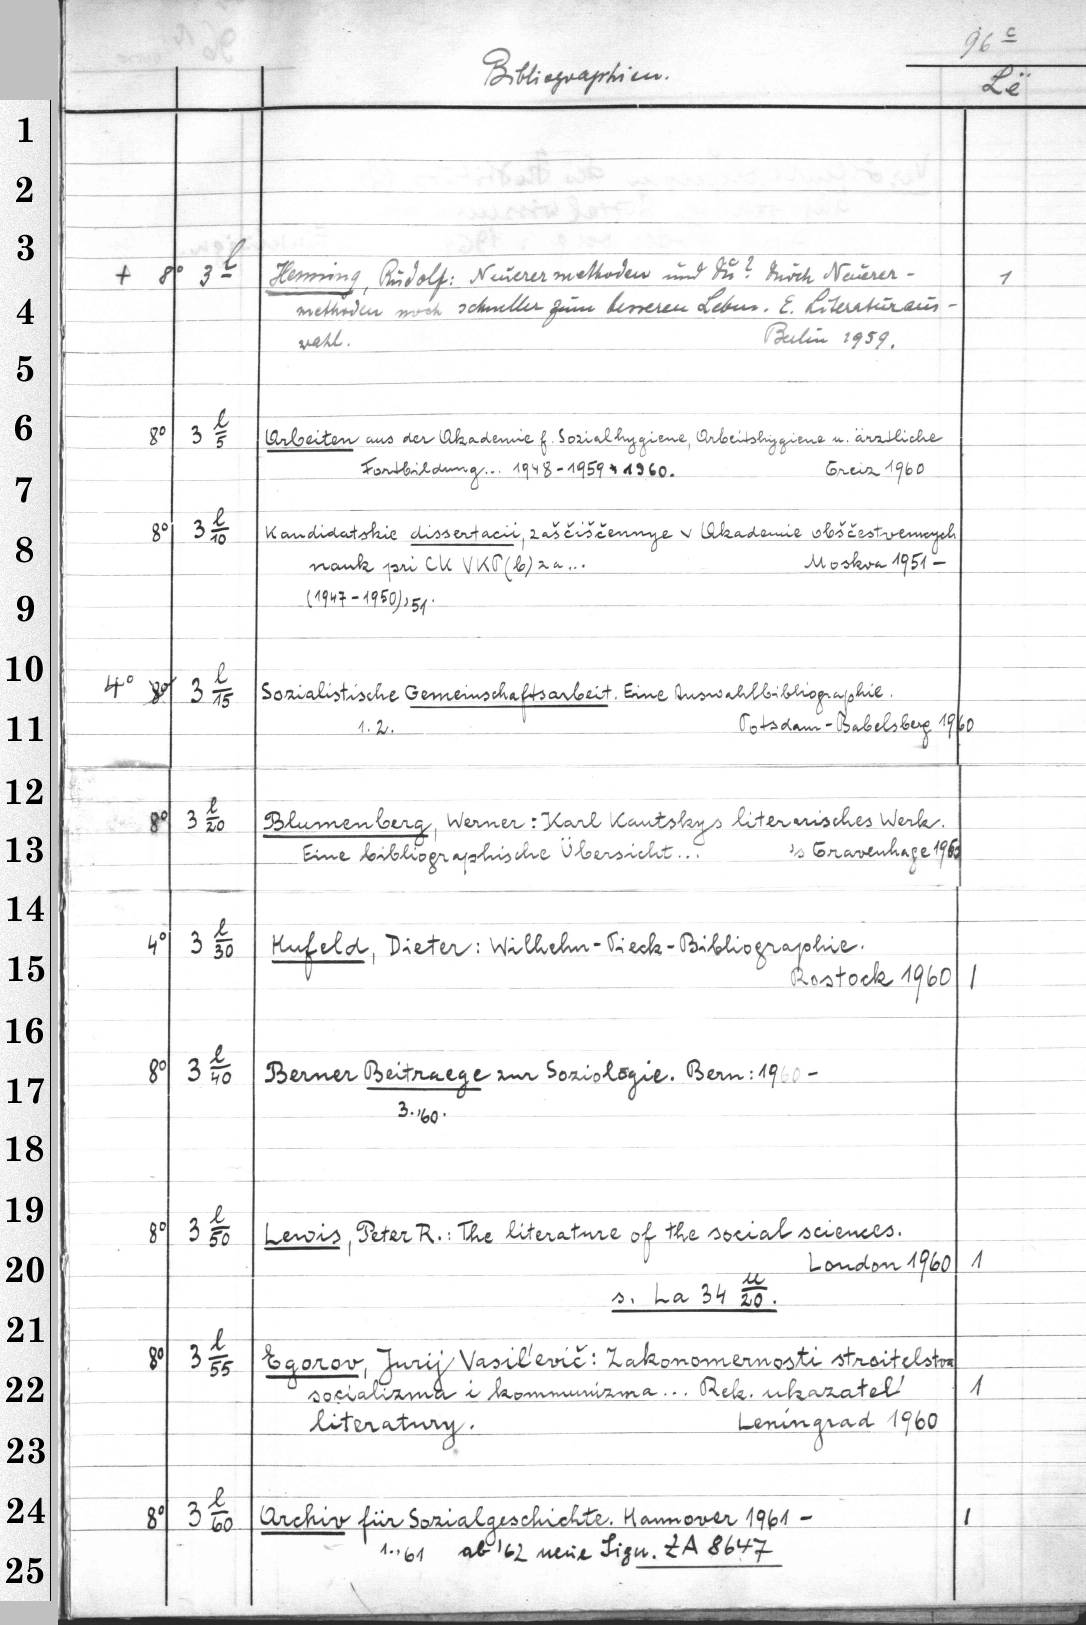 96 c
Bibliographien.
Lë
1
2
3
+ 8° 3 l Henning, Rudolf: Neuerermethoden und Du? Durch Neuerer- 1
4
methoden noch schneller zum besseren Leben. E. Literaturaus-
wahl. Berlin 1959.
5
6
8° 3 l/5 Arbeiten aus der Akademie f. Sozialhygiene, Arbeitshygiene u. ärztliche
Fortbildung... 1948-1959 + 1960. Greiz 1960
7
8° 3 l/10 Kandidatskie dissertacii, zaščiščennye v Akademie obščestvennych
8
nauk pri CK VKP(b) za... Moskva 1951-
9
(1947-1950),51.
10
4° 8° 3 l/15 Sozialistische Gemeinschaftsarbeit. Eine Auswahlbibliographie.
11
1.2. Potsdam-Babelsberg 1960
12
8° 3 l/20 Blumenberg, Werner: Karl Kautskys literarisches Werk.
13
Eine bibliographische Übersicht... 's Gravenhage 1960
14
4° 3 l/30 Hufeld, Dieter: Wilhelm-Pieck-Bibliographie.
15
Rostock 1960 1
16
8° 3 l/40 Berner Beitraege zur Soziologie. Bern: 1960-
17
3.,60.
18
19
8° 3 l/50 Lewis, Peter R.: The literature of the social sciences.
20
London 1960 1
s. La 34 u/20.
21
8° 3 l/55 Egorov, Jurij Vasil'evič: Zakonomernosti stroitelstva
22
socializma i kommunizma... Rek. ukazatel' 1
literatury. Leningrad 1960
23
24
8° 3 l/60 Archiv für Sozialgeschichte. Hannover 1961- 1
1.,61 ab '62 neue Sign. ZA 8647
25